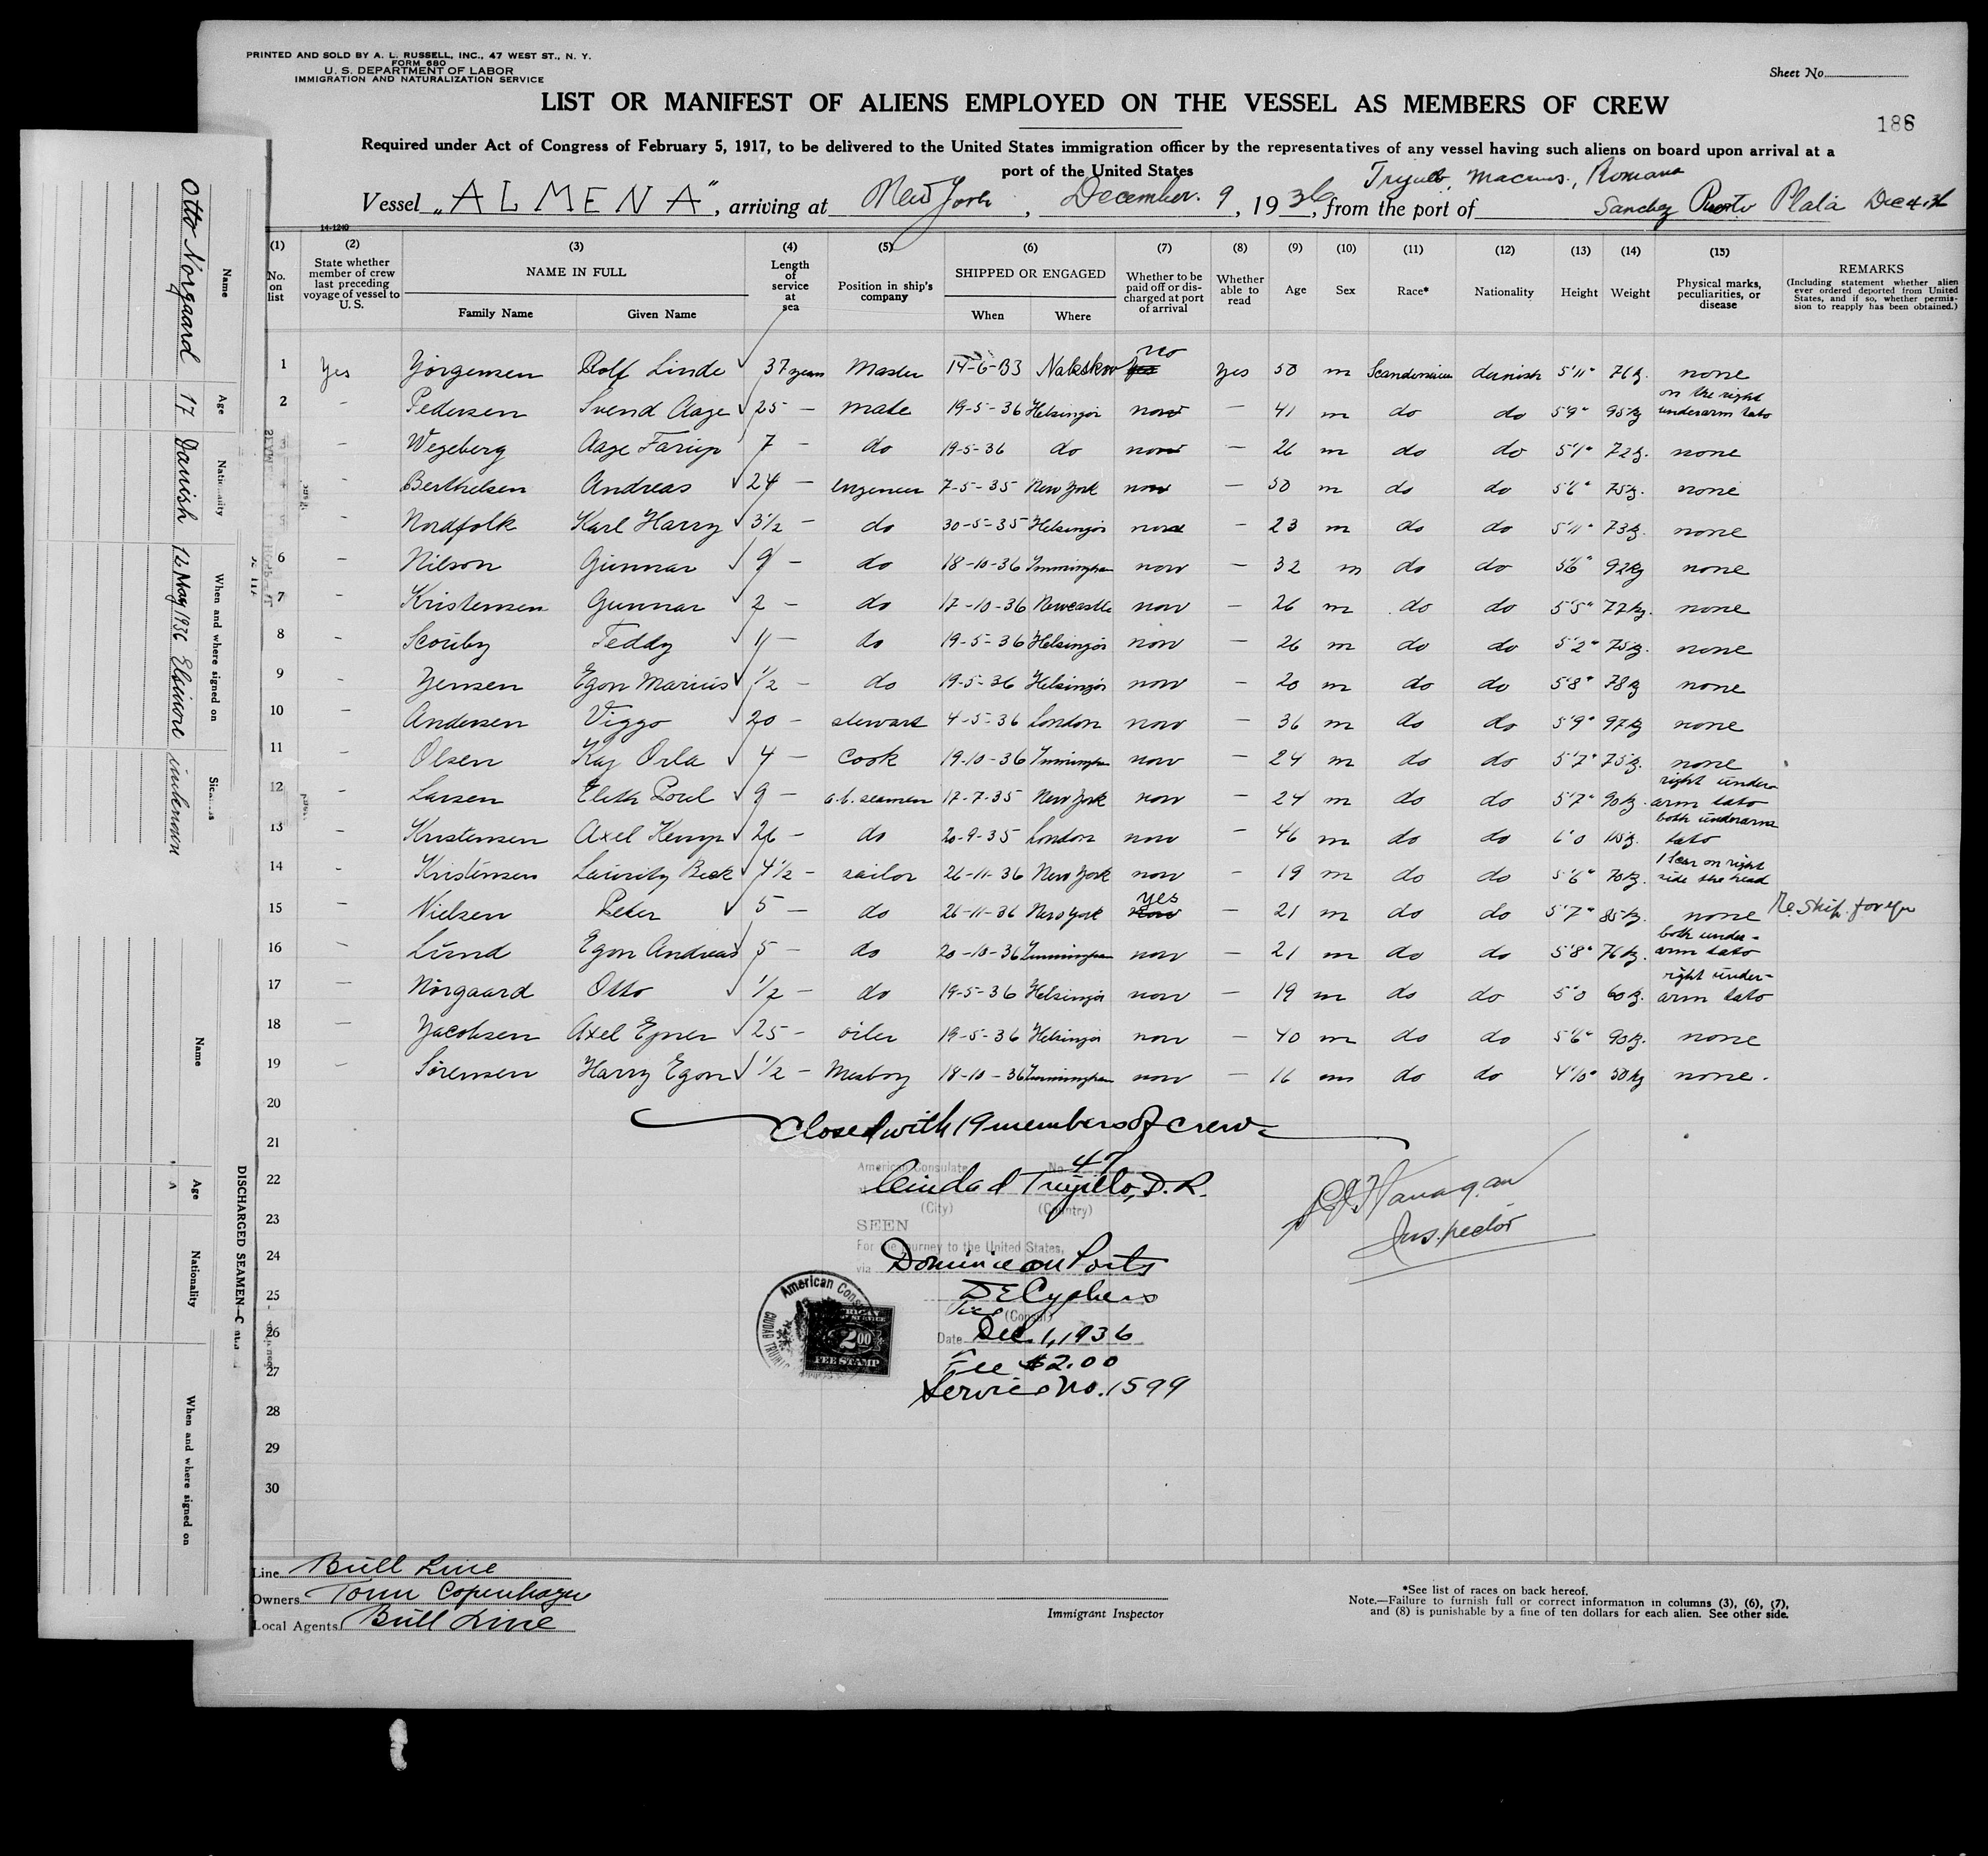 PRINTED AND SOLD BY A. L. RUSSELL, INC., 47 WEST ST., N. Y.
FORM 680
U. S. DEPARTMENT OF LABOR
IMMIGRATION AND NATURALIZATION SERVICE
Sheet No.
LIST OR MANIFEST OF ALIENS EMPLOYED ON THE VESSEL AS MEMBERS OF CREW
186
Required under Act of Congress of February 5, 1917, to be delivered to the United States immigration officer by the representatives of any vessel having such aliens on board upon arrival at a
port of the United States
Romana
Vessel "ALMENA", arriving at New York, December. 9, 1936, from the port of Sanchez Puerto Plata Dec 4.36
14-1240
(1) (2) (3) (4) (5) (6) (7) (8) (9) (10) (11) (12) (13) (14) (15)
No. on list
State whether member of crew last preceding voyage of vessel to U. S.
NAME IN FULL
Family Name Given Name
Length of service at sea
Position in ship's company
SHIPPED OR ENGAGED
When Where
Whether to be paid off or discharged at port of arrival
Whether able to read
Age Sex Race* Nationality Height Weight
Physical marks, peculiarities, or disease
REMARKS
(Including statement whether alien ever ordered deported from United States, and if so, whether permission to reapply has been obtained.)
1 Yes Jörgensen Rolf Linde 37 years Master 14-6-33 Nakskov yes no yes 50 m Scandinavian danish 5'11" 76 kg. none
2 - Pedersen Svend Aage 25 - mate 19-5-36 Helsingör now - 41 m do do 5'9" 95 kg on the right underarm tato
3 - Wegeberg Aage Farup 7 - do 19-5-36 do now - 26 m do do 5'1" 72 kg. none
4 - Berthelsen Andreas 24 - engeneer 7-5-35 New York now - 50 m do do 5'6" 75 kg. none
5 - Nordfolk Karl Harry 3½ - do 30-5-35 Helsingör now - 23 m do do 5'11" 73 kg. none
6 - Nilson Gunnar 9 - do 18-10-36 Immingham now - 32 m do do 5'6" 92 kg none
7 - Kristensen Gunnar 2 - do 17-10-36 Newcastle now - 26 m do do 5'5" 77 kg. none
8 - Scouby Teddy 11 - do 19-5-36 Helsingör now - 26 m do do 5'2" 75 kg. none
9 - Jensen Egon Marius ½ - do 19-5-36 Helsingör now - 20 m do do 5'8" 78 kg none
10 - Andersen Viggo 20 - stewart 4-5-36 London now - 36 m do do 5'9" 97 kg none
11 - Olsen Kaj Orla 4 - cook 19-10-36 Immingham now - 24 m do do 5'7" 75 kg. none
12 - Larsen Elith Poul 9 - a.b. seamen 17-7-35 New York now - 24 m do do 5'7" 90 kg. right underarm tato
13 - Kristensen Axel Kemp 26 - do 20-9-35 London now - 46 m do do 6'0 115 kg. both underarms tato
14 - Kristensen Lauritz Beck 4½ - sailor 26-11-36 New York now - 19 m do do 5'6" 70 kg. 1 scar on right side the head
15 - Nielsen Peter 5 - do 26-11-36 New York now yes - 21 m do do 5'7" 85 kg. none Re ship. foreign
16 - Lund Egon Andreas 5 - do 20-10-36 Immingham now - 21 m do do 5'8" 76 kg. both under-arm tato
17 - Nörgaard Otto ½ - do 19-5-36 Helsingör now - 19 m do do 5'0 60 kg. right under-arm tato
18 - Jacobsen Axel Ejner 25 - oiler 19-5-36 Helsingör now - 40 m do do 5'6" 90 kg. none
19 - Sörensen Harry Egon ½ - Messboy 18-10-36 Immingham now - 16 m do do 4'10" 50 kg none.
20
Closed with 19 members of crew
21
22
23
24
25
26
27
28
29
30
American Consulate No. 47
Ciudad Trujillo, D. R.
(City) (Country)
SEEN
For the journey to the United States,
via Dominican Ports
(Consul)
Date Dec. 1, 1936
Fee $2.00
Service No. 1599
American Cons
2.00
FEE STAMP
Flanagan
Inspector
Line Bull Line
Owners Torm Copenhagen
Local Agents Bull Line
Immigrant Inspector
*See list of races on back hereof.
Note.—Failure to furnish full or correct information in columns (3), (6), (7),
and (8) is punishable by a fine of ten dollars for each alien. See other side.
Name Age Nationality When and where signed on
Otto Norgaard 17 Danish 12 May 1936 Elsinore
DISCHARGED SEAMEN—
Name Age Nationality When and where signed on